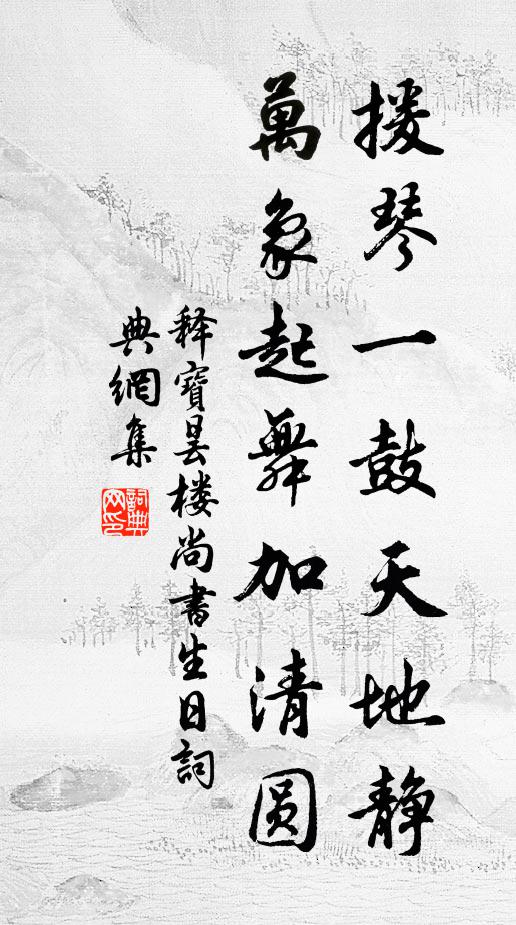 援琴一鼓天地静
萬象起舞加清圆
释寶昙楼尚書生日詞
典網集
詞典网印